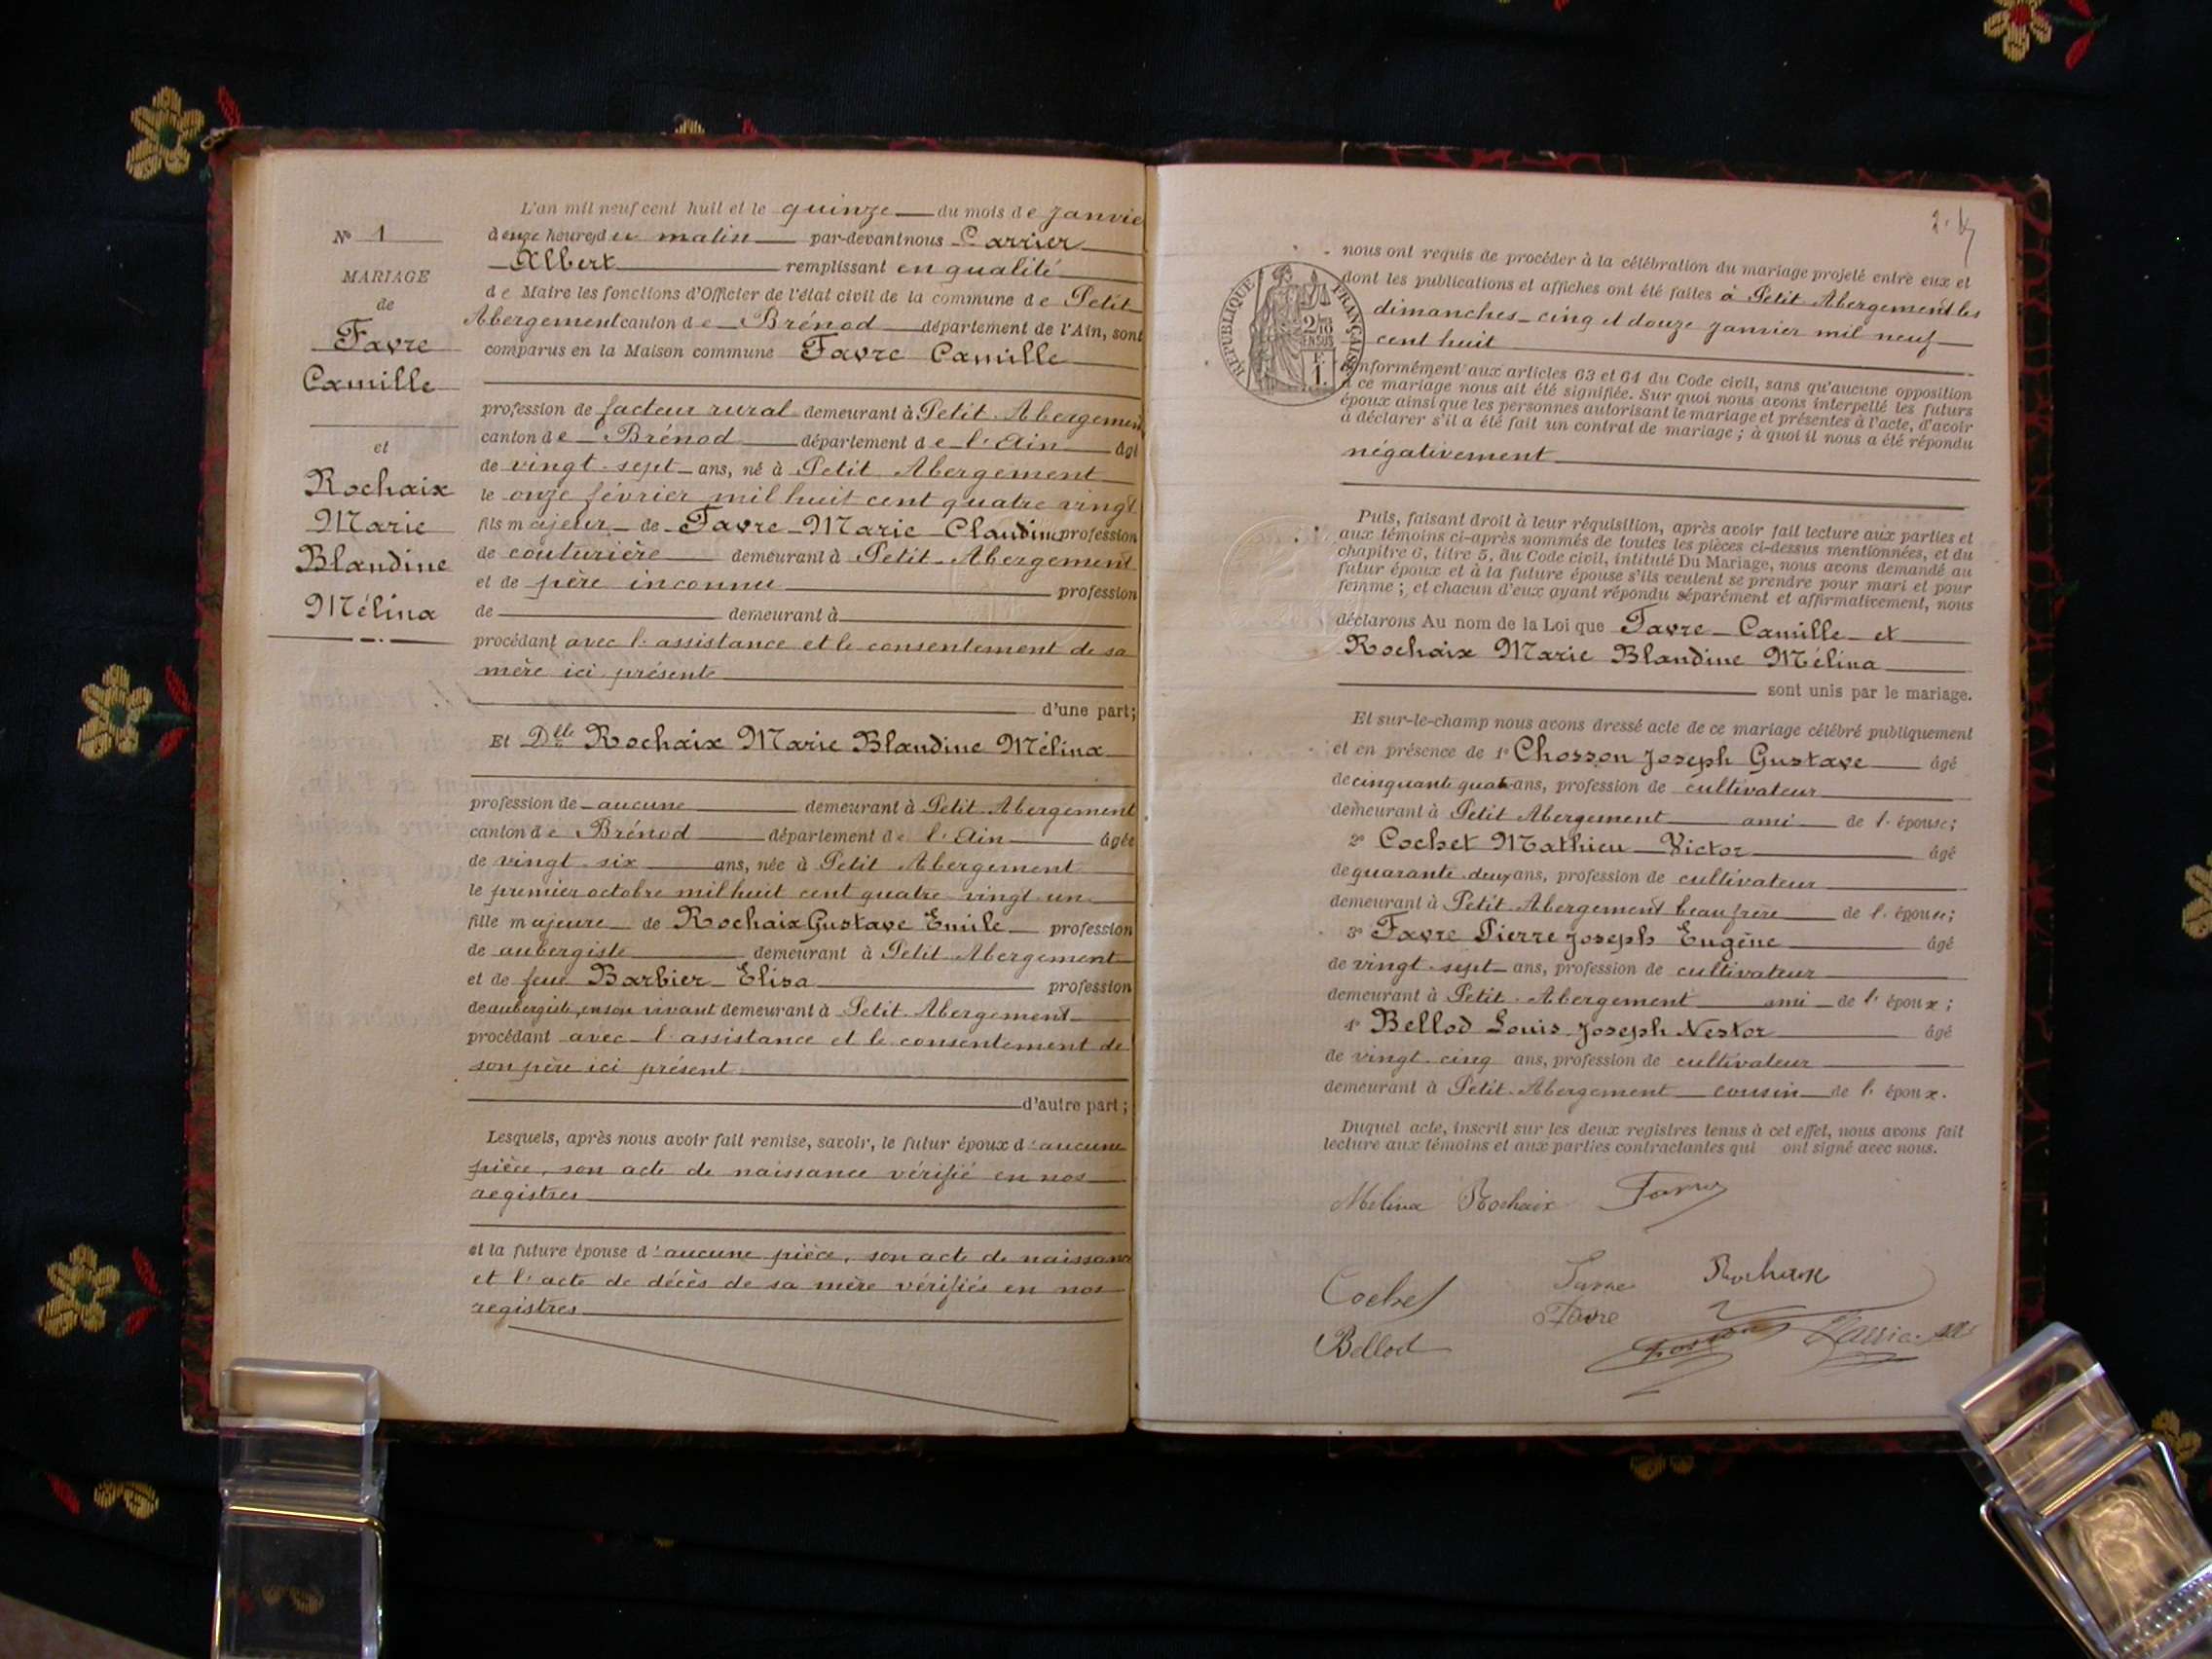 N° 1
MARIAGE
de
Favre
Camille
et
Rochaix
Marie
Blandine
Mélina
L'an mil neuf cent huit et le quinze du mois de Janvie
à onze heures du matin par-devant nous Carrier
Albert remplissant en qualité
de Maire les fonctions d'Officier de l'état civil de la commune de Petit
Abergement canton de Brénod département de l'Ain, sont
comparus en la Maison commune Favre Camille
profession de facteur rural demeurant à Petit-Abergement
canton de Brénod département de l'Ain âgé
de vingt-sept ans, né à Petit Abergement
le onze février mil huit cent quatre vingt
fils majeur de Favre Marie Claudine profession
de couturière demeurant à Petit-Abergement
et de père inconnu profession
de demeurant à
procédant avec l'assistance et le consentement de sa
mère ici présente
d'une part;
Et Dlle Rochaix Marie Blandine Mélina
profession de aucune demeurant à Petit-Abergement
canton de Brénod département de l'Ain âgée
de vingt-six ans, née à Petit Abergement
le premier octobre mil huit cent quatre-vingt un
fille majeure de Rochaix Gustave Emile profession
de aubergiste demeurant à Petit-Abergement
et de feue Barbier Elisa profession
de aubergiste, en son vivant demeurant à Petit-Abergement
procédant avec l'assistance et le consentement de
son père ici présent
d'autre part;
Lesquels, après nous avoir fait remise, savoir, le futur époux d'aucune
pièce, son acte de naissance vérifié en nos
registres
et la future épouse d'aucune pièce, son acte de naissance
et l'acte de décès de sa mère vérifiés en nos
registres
2.
RÉPUBLIQUE FRANÇAISE
2/10
EN SUS
F.
1.
nous ont requis de procéder à la célébration du mariage projeté entre eux et
dont les publications et affiches ont été faites à Petit Abergement les
dimanches cinq et douze janvier mil neuf
cent huit
conformément aux articles 63 et 64 du Code civil, sans qu'aucune opposition
à ce mariage nous ait été signifiée. Sur quoi nous avons interpellé les futurs
époux ainsi que les personnes autorisant le mariage et présentes à l'acte, d'avoir
à déclarer s'il a été fait un contrat de mariage; à quoi il nous a été répondu
négativement
Puis, faisant droit à leur réquisition, après avoir fait lecture aux parties et
aux témoins ci-après nommés de toutes les pièces ci-dessus mentionnées, et du
chapitre 6, titre 5, du Code civil, intitulé Du Mariage, nous avons demandé au
futur époux et à la future épouse s'ils veulent se prendre pour mari et pour
femme; et chacun d'eux ayant répondu séparément et affirmativement, nous
déclarons Au nom de la Loi que Favre Camille et
Rochaix Marie Blandine Mélina
sont unis par le mariage.
Et sur-le-champ nous avons dressé acte de ce mariage célébré publiquement
et en présence de 1° Chosson Joseph Gustave âgé
de cinquante quatre ans, profession de cultivateur
demeurant à Petit Abergement ami de l'épouse;
2° Cochet Mathieu Victor âgé
de quarante-deux ans, profession de cultivateur
demeurant à Petit-Abergement beau frère de l'épouse;
3° Favre Pierre Joseph Eugène âgé
de vingt-sept ans, profession de cultivateur
demeurant à Petit-Abergement ami de l'époux;
4° Bellod Louis Joseph Nestor âgé
de vingt-cinq ans, profession de cultivateur
demeurant à Petit-Abergement cousin de l'époux.
Duquel acte, inscrit sur les deux registres tenus à cet effet, nous avons fait
lecture aux témoins et aux parties contractantes qui ont signé avec nous.
Melina Rochaix Favre
Cochet Favre Rochaix
Bellod Favre